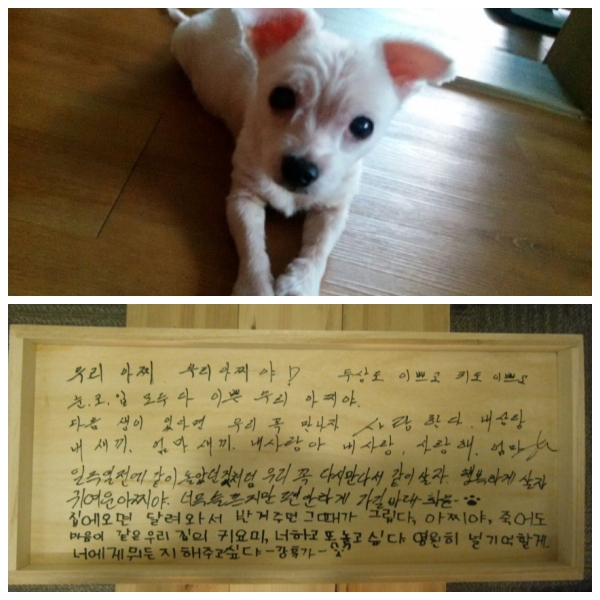 우리 아찌 우리아찌야! 두상도 이쁘고 키도 이쁘고
눈.코.입 모두 다 이쁜 우리 아찌야.
다음 생이 있다면 우리 꼭 만나자 사랑한다. 내사랑
내 새끼. 엄마 새끼. 내사랑아 내사랑, 사랑해. 엄마가
같이 우리 꼭 다시만나서 같이살자. 행복하게 살자
귀여운아찌야. 너무슬프지만 편안하게 가길바래
집에오면 달려와서 반겨주면 그때가 그립다, 아찌야, 죽어도
마음이 같은우리 집의 귀요미, 너하고 또 놀고싶다 영원히 널기억할게
너에게뭐든지해주고싶다